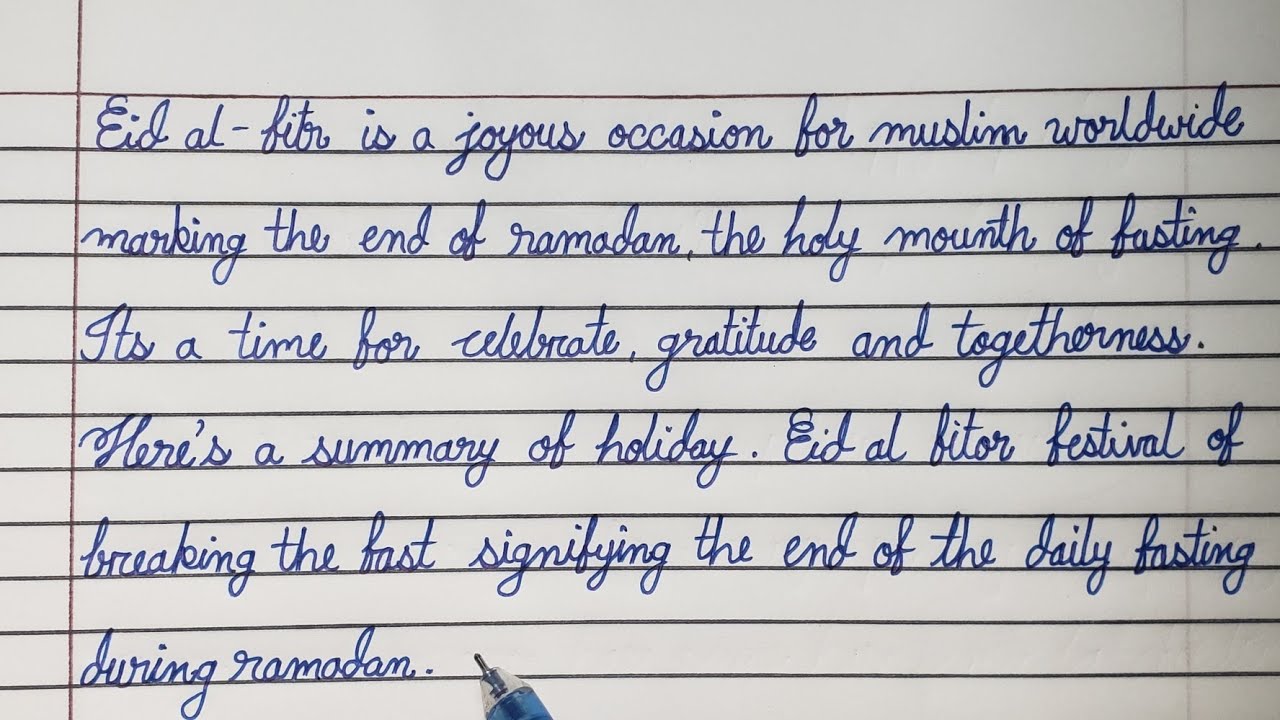 Eid al-fitr is a joyous occasion for muslim worldwide
marking the end of ramadan, the holy mounth of fasting.
Its a time for celebrate, gratitude and togetherness.
Here's a summary of holiday. Eid al fitor festival of
breaking the fast signifying the end of the daily fasting
during ramadan.